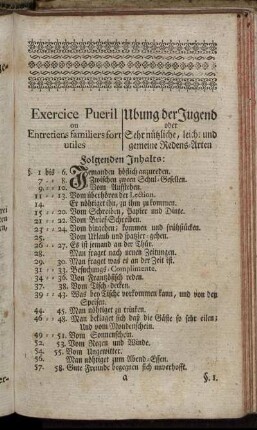 Exercice Pueril
ou
Entretiens familiers fort
utiles
Ubung der Jugend
oder
Sehr nützliche, leicht und
gemeine Redens-Arten
Folgenden Inhalts:
§. 1 bis 6. Jemanden höflich anzureden.
7 - - 8. Zwischen zween Schul-Gesellen.
9 - - 10. Vom Aufstehen.
11 - - 13. Vom überhören der Lection.
14. Er nöhtiget ihn, zu ihm zu kommen.
15 - - 20. Vom Schreiben, Papier und Dinte.
21 - - 22. Vom Brief-Schreiben.
23 - - 24. Vom dingehen: kommen und frühstücken.
25. Vom Urlaub und spatzier-gehen.
26 - - 27. Es ist jemand an der Thür.
28. Man fraget nach neuen Zeitungen.
29. 30. Man fraget was es an der Zeit ist.
31 - - 33. Besuchungs-Complimente.
34 - - 36. Von Frantzösisch reden.
37. 38. Vom Tisch-decken.
39 - - 43. Was bey Tische vorkommen kann, und von den
Speisen.
44 - - 45. Man nöhtiget zu trinken.
46 - - 48. Man beklaget sich daß die Gäste so sehr eilen:
Und vom Mondenschein.
49 - - 51. Vom Sonnenschein.
52. 53. Vom Regen und Winde.
54. 55. Vom Ungewitter.
56. Man nöhtiget zum Abend-Essen.
57. 58. Gute Freunde begegnen sich unverhofft.
a §. 1.